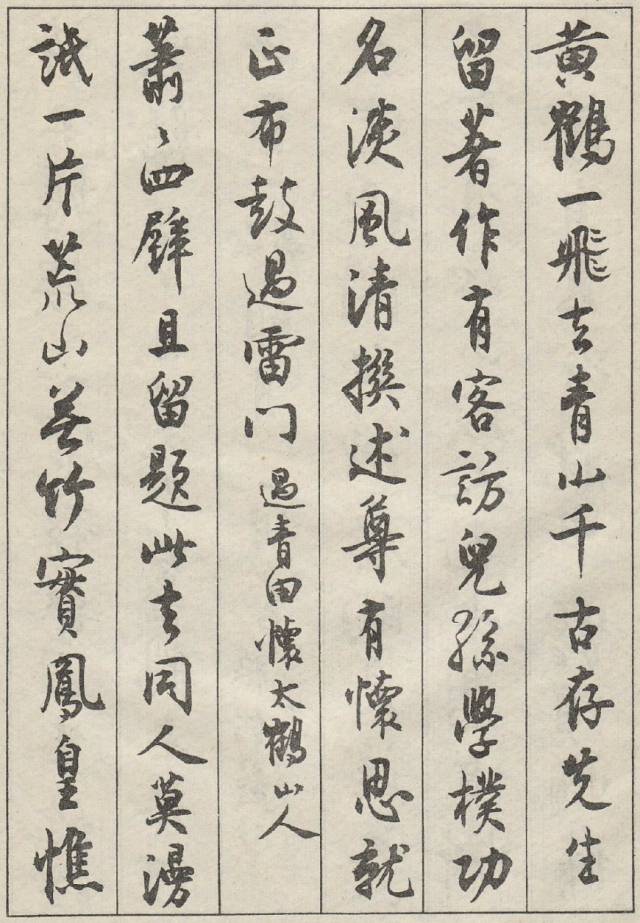 黄鶴一飛去青山千古存先生
留著作有客訪兒孫學樸功
名淡風清撰述尊有懷思就
正布鼓過雷门 過青田懷太鶴山人
蕭〻四壁且留題此去同人莫漫
詆一片荒山无竹實鳳皇憔